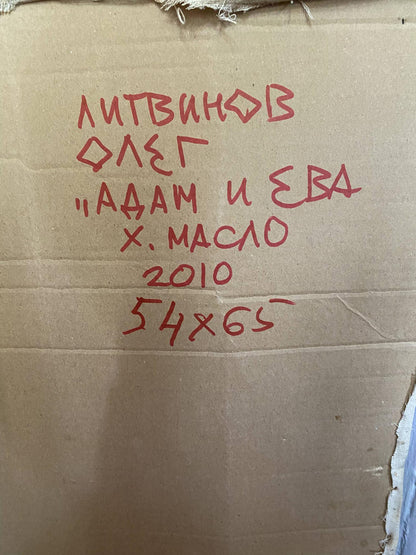 ЛИТВИНОВ
ОЛЕГ
„АДАМ И ЕВА
Х. МАСЛО
2010
54x65